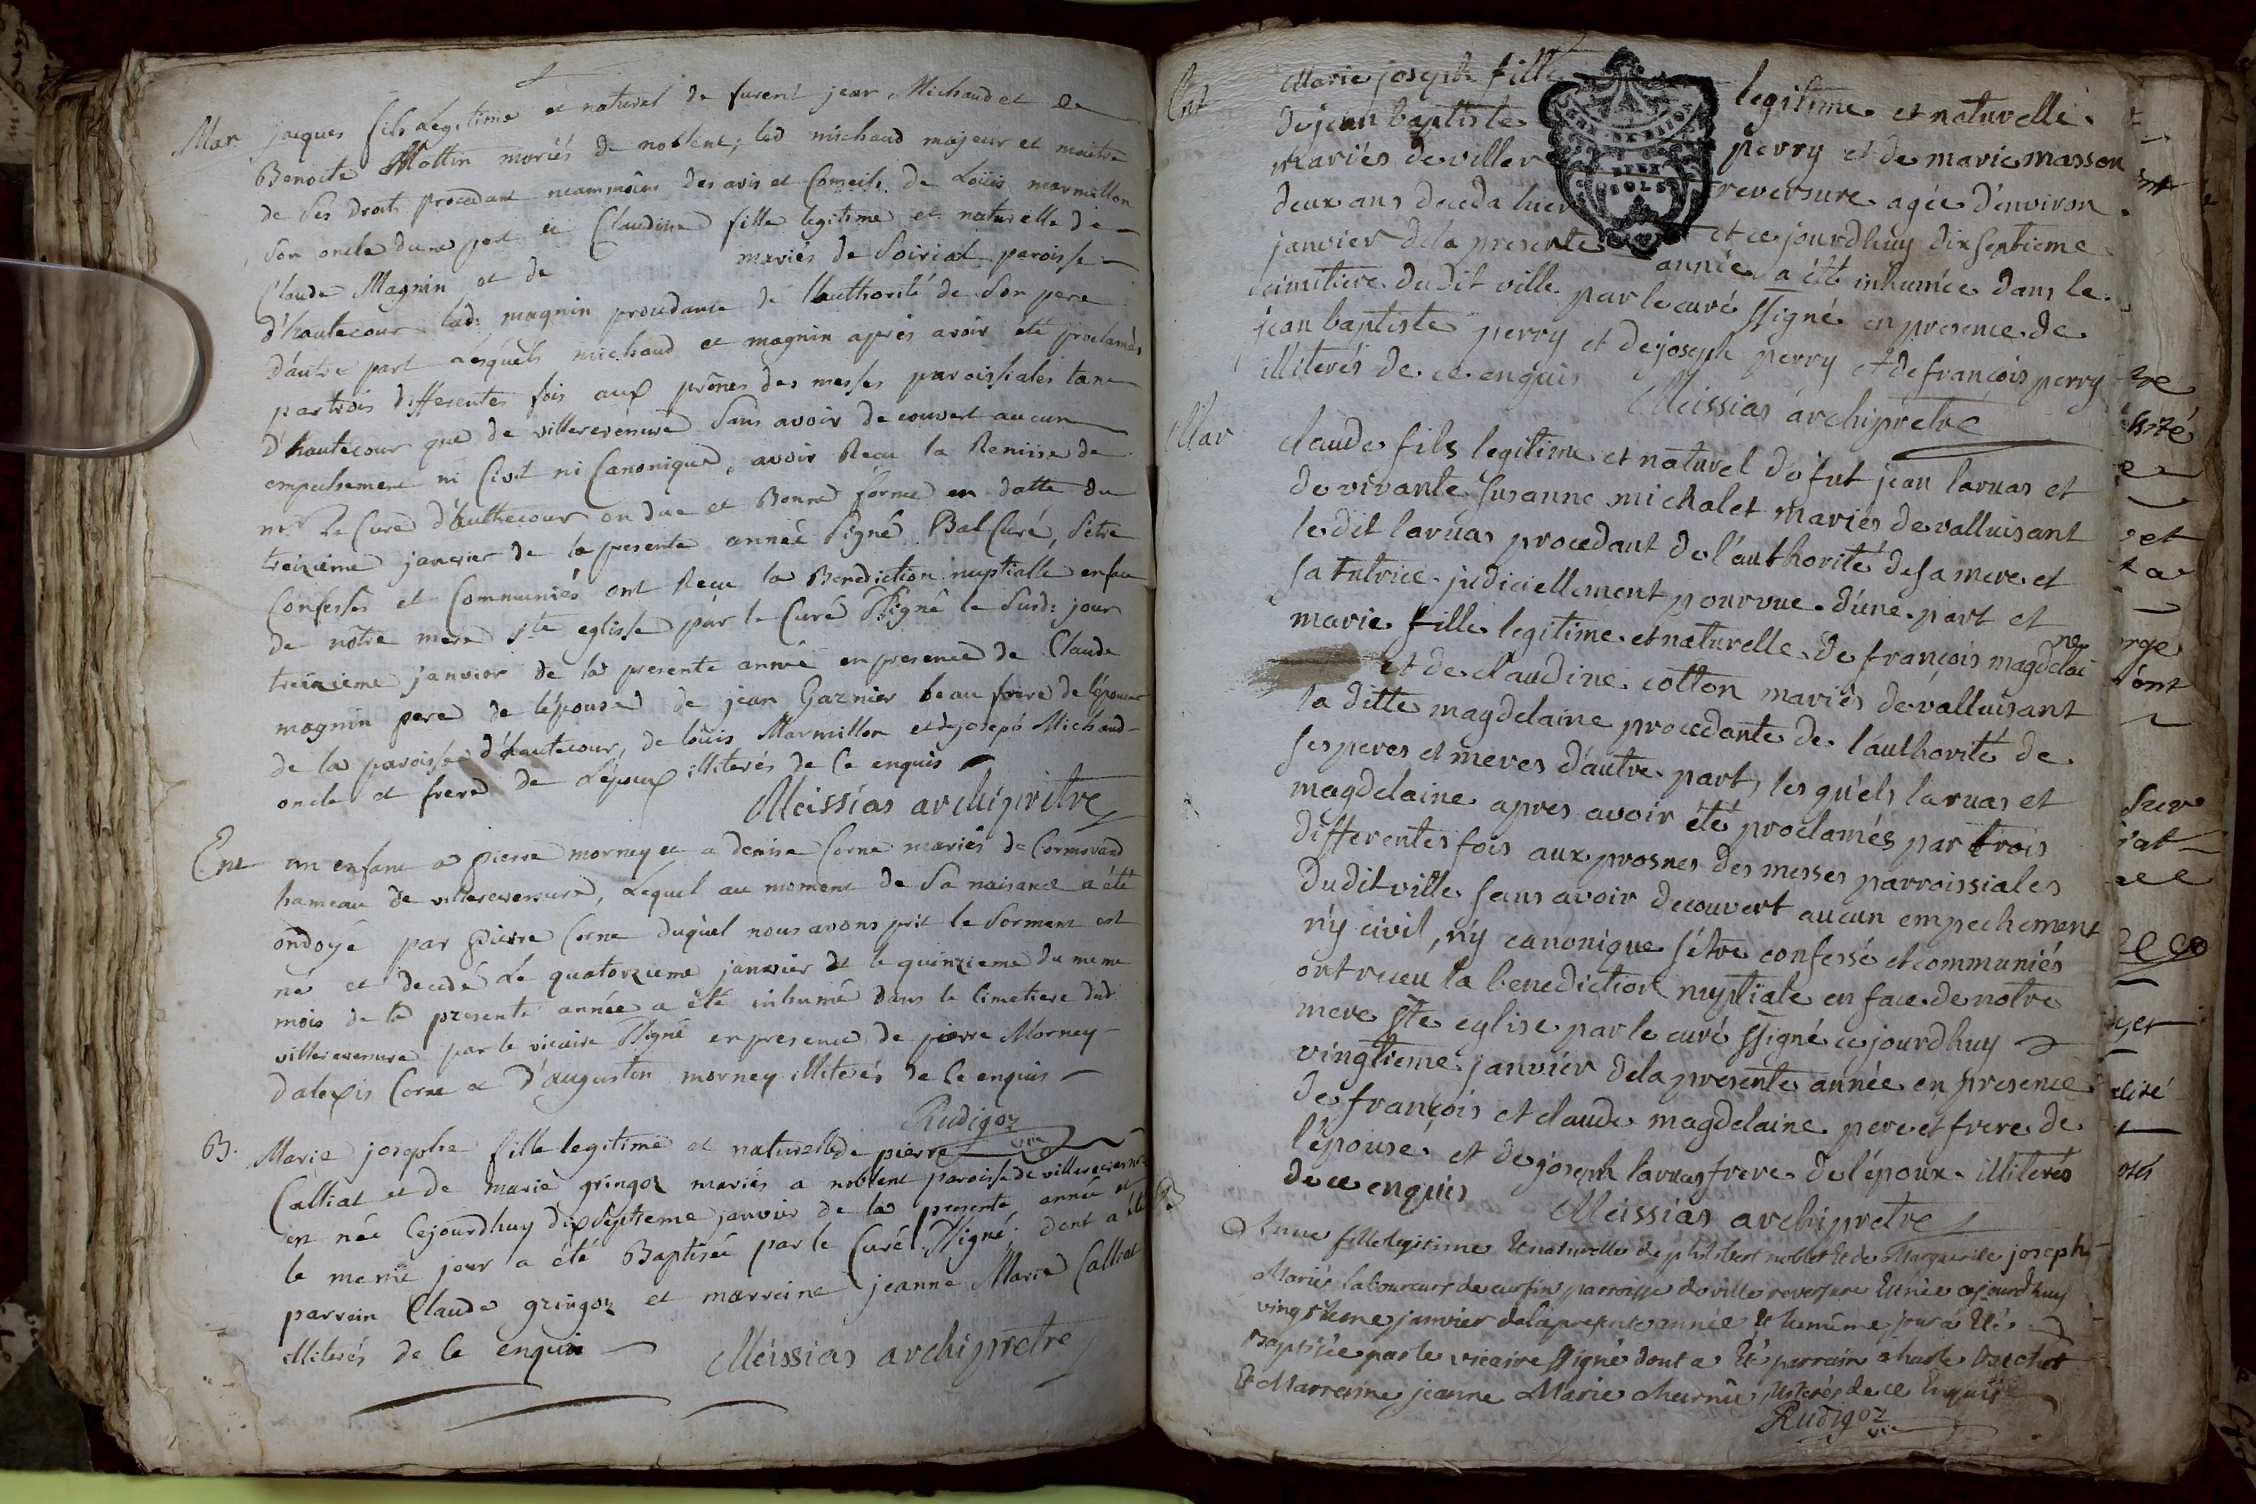 Mar jacques fils legitime et naturel de furent jean Michaud et de
Benoite Mottin mariés de noblent; led michaud majeur et maitre
de ses droits procedant neammoins des avis et Conseils de Loüis marmillon
son oncle dune part et Claudine fille legitime et naturelle de
Claude Magnin et de mariés de Soiriat paroisse
d'hautecour lad: magnin procedante de l'authorité de son pere
d'autre part lesquels michaud et magnin apres avoir eté proclamés
par trois differentes fois aux prônes des messes paroissiales tant
d'hautecour que de villereversure sans avoir decouvert aucun
empechement ni Civil ni Canonique, avoir Recu la Remise de
mr Le Curé d'hautecour en due et Bonne forme en datte du
treizieme janvier de la presente année signé Bal Curé, s'etre
Confessés et Communiés ont Recu la Benediction nuptialle en face
de notre mere ste eglisse par le Curé ssigné le susd: jour
treizieme janvier de la presente année en presence de Claude
magnin pere de l'épouse de jean Gaznier beau frere de l'épouse
de la paroisse d'hautecour, de loüis Marmillon et de joseph Michaud
oncle et frere de L'époux illiterés de Ce enquis
Meissias archiprêtre
Ent un enfant a pierre morney et a denise Corne mariés de Cormorand
hameau de villereversure, Lequel au moment de sa naisance a été
ondoyé par pierre Corne duquel nous avons prit le serment est
né et decedé Le quatorzieme janvier et le quinzieme du meme
mois de la presente année a été inhumé dans le Cimetiere dud:
villereversure par le vicaire ssigné en presence de pierre Morney
d'alexis Corne et d'augustin morney illiterés de Ce enquis
Rudigoz vic
B. Marie josephe fille legitime et naturelle de pierre
Calliat et de marie gringoz mariés a noblent paroisse de villereversure
en née Cejourdhuy dixseptieme janvier de la presente année et
le meme jour a été Baptisée par le Curé ssigné dont a été
parrain Claude gringoz et marreine jeanne Marie Calliat
illiterés de Ce enquis
Meissias archiprêtre
Ent Marie joseph fille legitime et naturelle
de jean baptiste perry et de marie masson
mariés de ville reversure agée d'environ
deux ans deceda hier et ce jourdhuy dix septieme
janvier de la presente année a été inhumée dans le
cimitiere dudit ville par le curé ssigné en presence de
jean baptiste perry et de joseph perry et de françois perry
illiterés de ce enquis
Meissias archiprêtre
Mar claude fils legitime et naturel de fut jean laruas et
de vivante susanne michalet mariés de valluisant
le dit laruas procedant de l'authorité de sa mere et
sa tutrice judiciellement pourvue d'une part et
marie fille legitime et naturelle de françois magdelai
ne
et de claudine cotton mariés de valluisant
la ditte magdelaine procedante de l'authorité de
ses peres et meres d'autre part, les quels laruas et
magdelaine apres avoir été proclamés par trois
differentes fois aux prosnes des messes parroissiales
du dit ville sans avoir decouvert aucun empechement
n'y civil, n'y canonique s'être confessé et communiés
ont recu la benediction nuptiale en face de notre
mere ste eglise par le curé ssigné ce jourdhuy
vingtieme janvier de la presente année en presence
de françois et claude magdelaine pere et frere de
l'épouse, et de joseph laruas frere de l'époux illiterés
de ce enquis
Meissias archiprêtre
B Anne fille legitime et naturelle de philibert noblet et de Marguerite joseph
Mariés laboureurs de parroisse de ville reversure Et née ajourdhuy
vingtieme janvier de la presente année et le même jour a été
Baptisée par le vicaire ssigné dont a été parrain charle
Et Marreine jeanne Marie illiterés de ce Enquis
Rudigoz vic